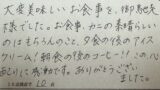 大変美味しいお食事を、御馳走
様でした。お食事、カニの素晴らしい
のはもちろんのこと、夕食の後のアイス
クリーム！朝食の後のコーヒー！！この、心
配りに感動です。ありがとうござい
ました。